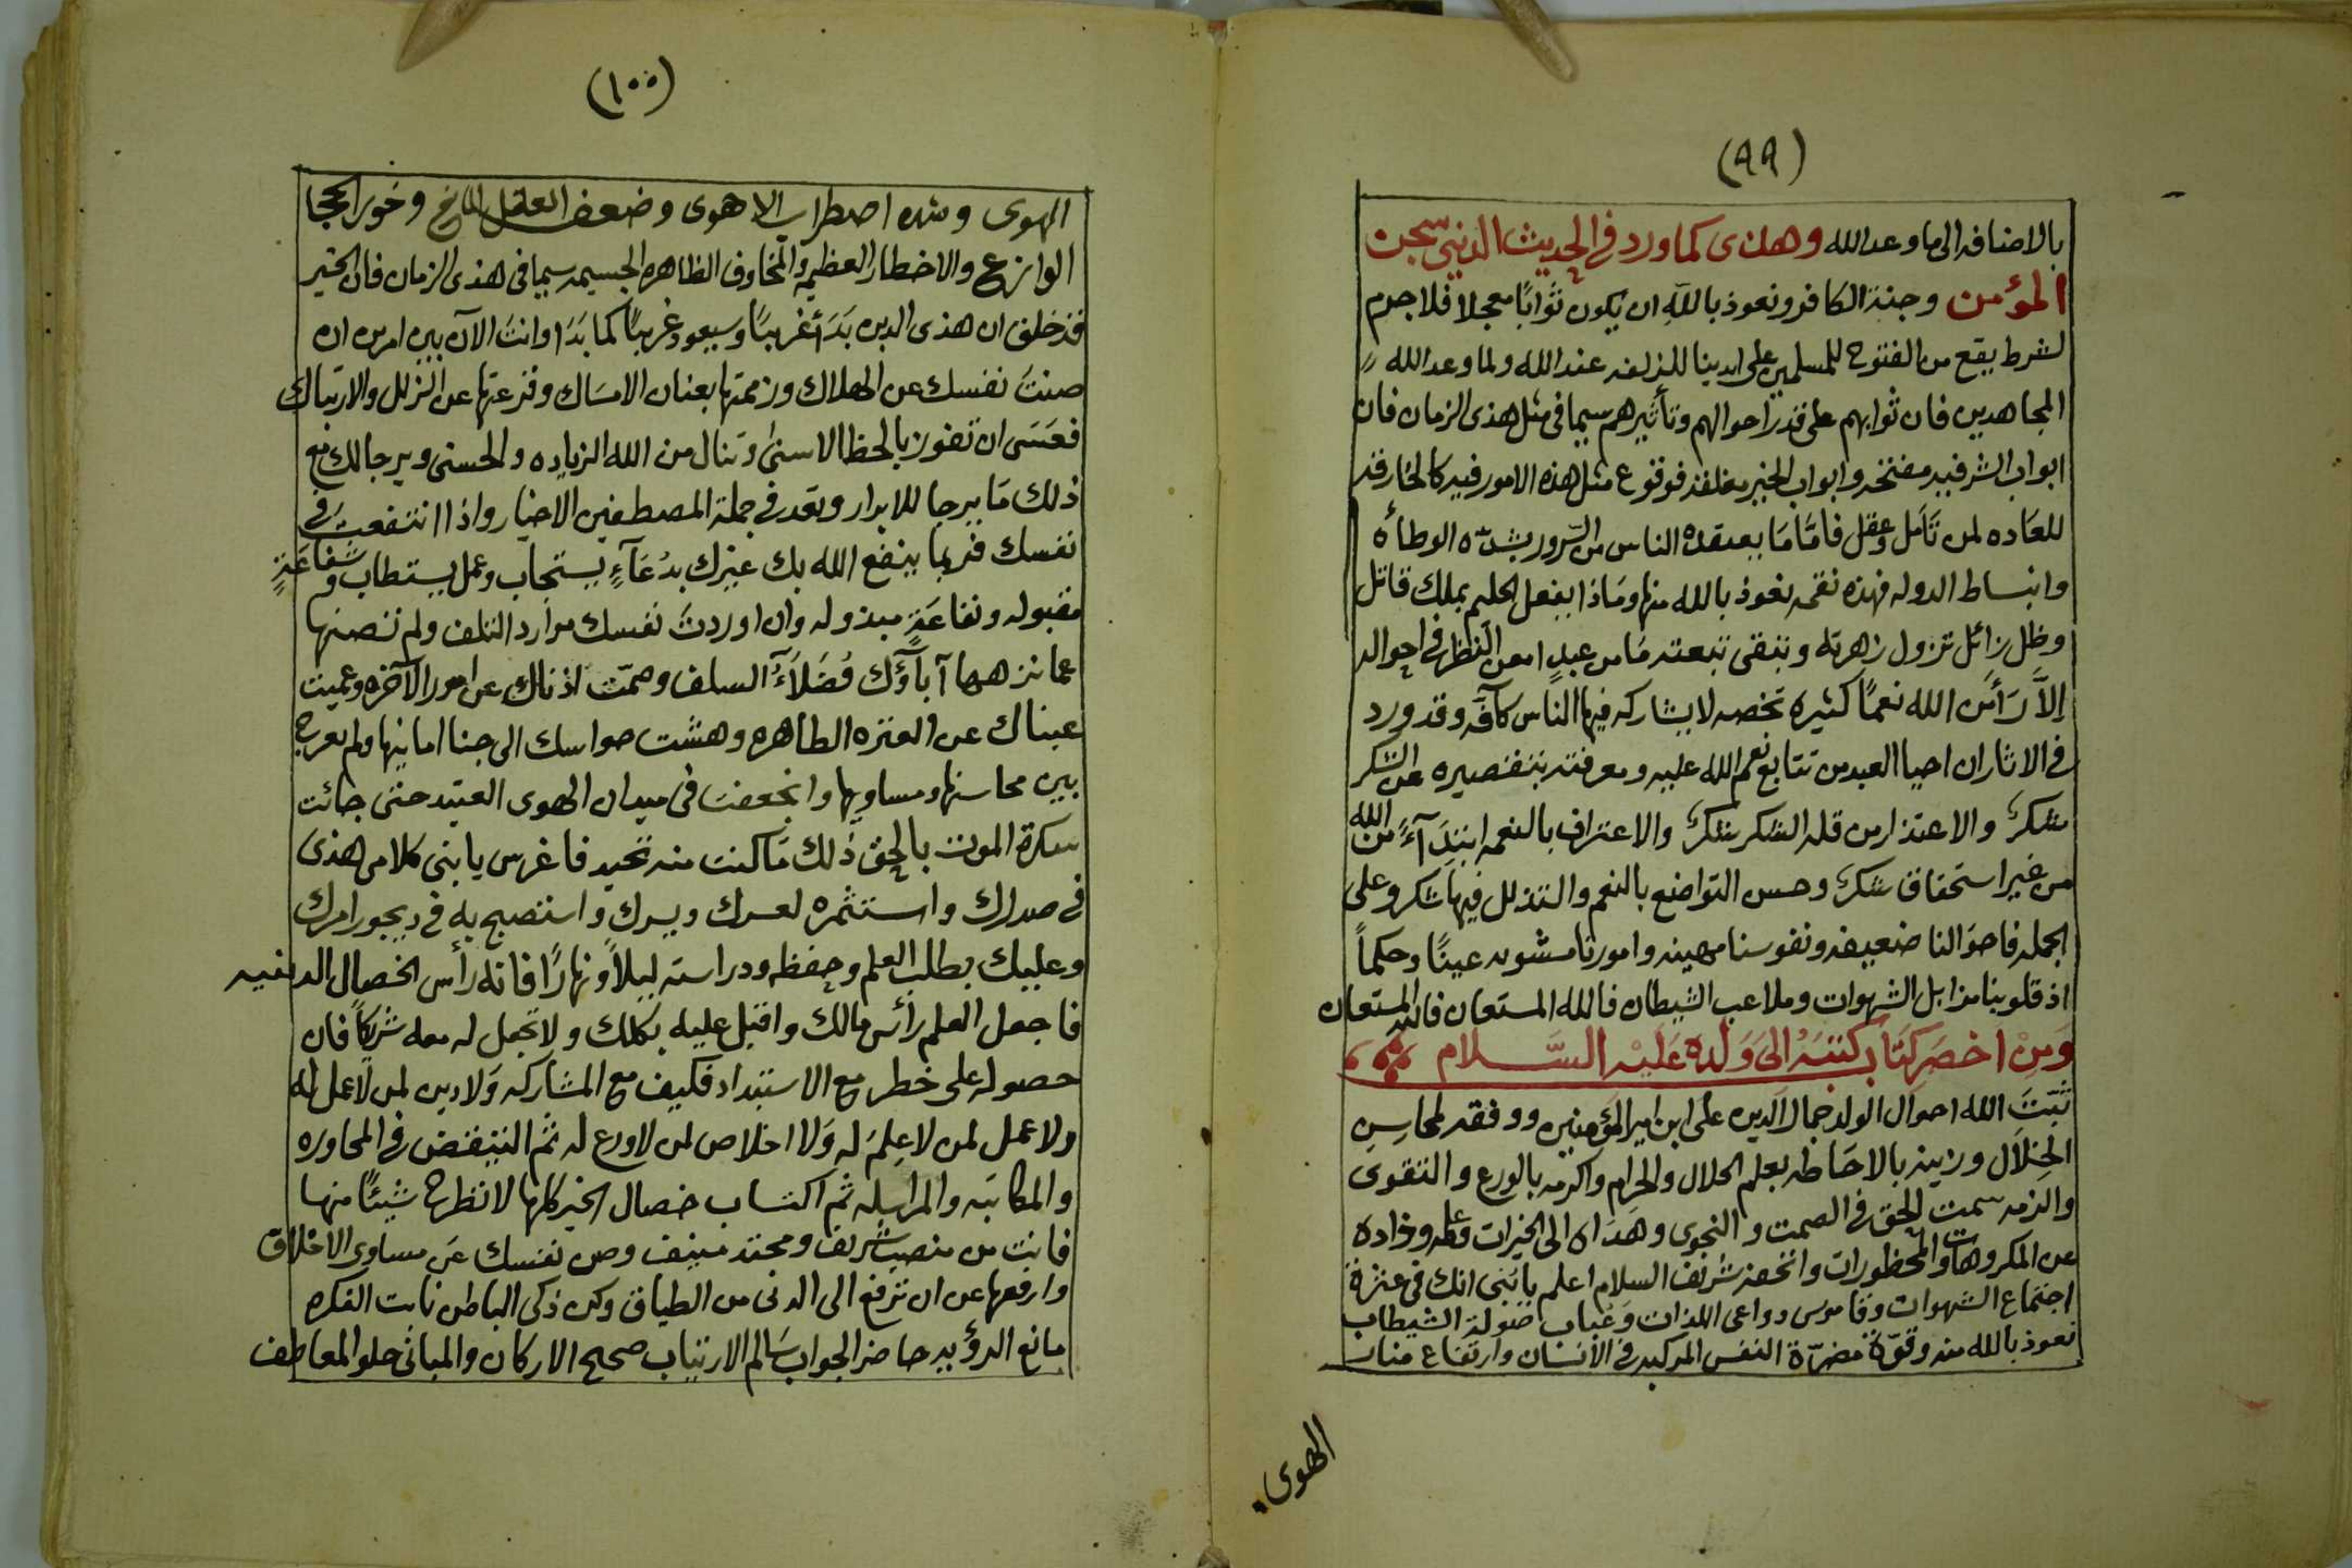 (٩٩)
بالاضافه الى ما وعد الله وهذى كما ورد في الحديث الدنيى سجن
المؤمن وجنة الكافر ونعوذ بالله ان يكون ثوابًا معجلا فلا جرم
لشرط يقع من الفتوح للمسلمين على ايدينا للزلفه عند الله ولما وعد الله
المجاهدين فان ثوابهم على قدر احوالهم وتأثيرهم سيما في مثل هذى الزمان فان
ابواب الشر فيه مفتحه وابواب الخير مغلقه فوقوع مثل هذه الامور فيه كالخارقه
للعاده لمن تأمل وعقل فامّا مَا يعتقده الناس من السّرور بشدّه الوطأه
وانبساط الدوله فهذه نقمه نعوذ بالله منها ومَاذا يفعل الحليم بملك قاتل
وظل زائل تزول زهرته وتبقى تبعته مَا من عبدٍ امعن النظر في احواله
اِلاَّ رَأى من الله نعمًا كثيره تخصه لا يشاركه فيها الناس كآفّه وقد ورد
في الاثار ان احيا العبد من تتابع نعم الله عليه ومعرفته بتقصيره عن الشكر
شكرٌ والاعتذار من قله الشكر شكرٌ والاعتراف بالنعمه ابتدَآءً من الله
من غير استحقاق شكرٌ وحسن التواضع بالنعم والتذلل فيها شكر وعلى
الجمله فاحوَالنا ضعيفه ونفوسنا مهينه وامورنا مشوبه عينًا وحكماً
اذ قلوبنا مزابل الشهوات وملاعب الشيطان فالله المستعان فالله المستعان
وَمِنْ اخصَر كتَاب كتبَهُ الىَ وَلَدهِ عَليْه السَّلام
ثَبّتَ الله احوال الولد جمال الدين على ابن امير المؤمنين ووفقه لمحاسِن
الخِلَال وزينه بالاحَاطه بعلم الحلال والحرام واكرمه بالورع والتقوى
والزمه سمت الحق في الصمت والنجوى وهدَاه الى الخيرات وعلمه وذاده
عن المكروهات والمحظورات واتحفه شريف السلام اعلم يا بنى انك في عنزة
اجتماع الشهوات وقاموس دواعى اللذات وَعُبَاب صَولة الشيطان
نعوذ بالله منه وقوّة مضرّة النفس المركبه في الانسان وارتفاع منار
الهوى
(١٠٠)
الهوى وشده اضطراب الاهوى وضعف العقل وخور الحجا
الوازع والاخطار العظيمه والمخاوف الظاهره الجسيمه سيما فى هذى الزمان فان الخير
قد خلق ان هذى الدين بَدَأ غريبًا وسيعود غريبًا كما بَدَا وانت الآن بين امرين ان
صنتَ نفسك عن الهلاك وزممتها بعنان الامسَاك وقرعتها عن الزلل والارتباك
فعَسَى ان تفوز بالحظ الاسنىَ وتنال من الله الزياده والحسنى ويرجا لك مع
ذلك مَا يرجا للابرار وتعد في جملة المصطفين الاخيار واذا انتفعت في
نفسك فربما ينفع الله بك غيرك بدُعَآءٍ يستجاب وعمل يستطاب وشفاعَةٍ
مقبوله ونفاعَةٍ مبذوله وان اوردتَ نفسك موارد التلف ولم تصنها
عما نزهها آبآؤك فُضَلَآءُ السلف وصمّت اذناك عن امور الآخره وعميت
عيناك عن العتره الطاهره وهشت حواسك الى جنا امانيها ولم تعرج
بين محاسنها ومساويها وانجعفت فى ميدان الهوى العتيد حتى جائت
سكرة الموت بالحق ذلك مَا كنت منه تحيد فاغرس يا بنى كلامى هذى
في صدرك واستثمره لعسرك ويسرك واستصبح به في ديجور امرك
وعليك بطلب العلم وحفظه ودراسته ليلاً ونهارًا فانه رأس الخصال الدينيه
فاجعل العلم رأس مالك واقبل عليه بكلك ولا تجعل له معه شريكًا فان
حصوله على خطر مع الاستبداد فكيف مع المشاركه وَلا دين لمن لا عمل له
ولا عمل لمن لا عِلمَ له وَلا اخلاص لمن لا ورع له ثم التيقض في المحاوره
والمكاتبه والمراسله ثم اكتساب خصال الخير كلها لا تطرح شيئًا منها
فانت من منصب شريف ومحتد منيف وصن نفسك عَن مساوى الاخلاق
وارفعها عن ان ترفع الى الدنى من الطباق وكن ذكى الباطن ثابت الفكره
مانع الرؤيه حاضر الجواب سَالم الارتياب صحيح الاركان والمبانى حلو المعاطف